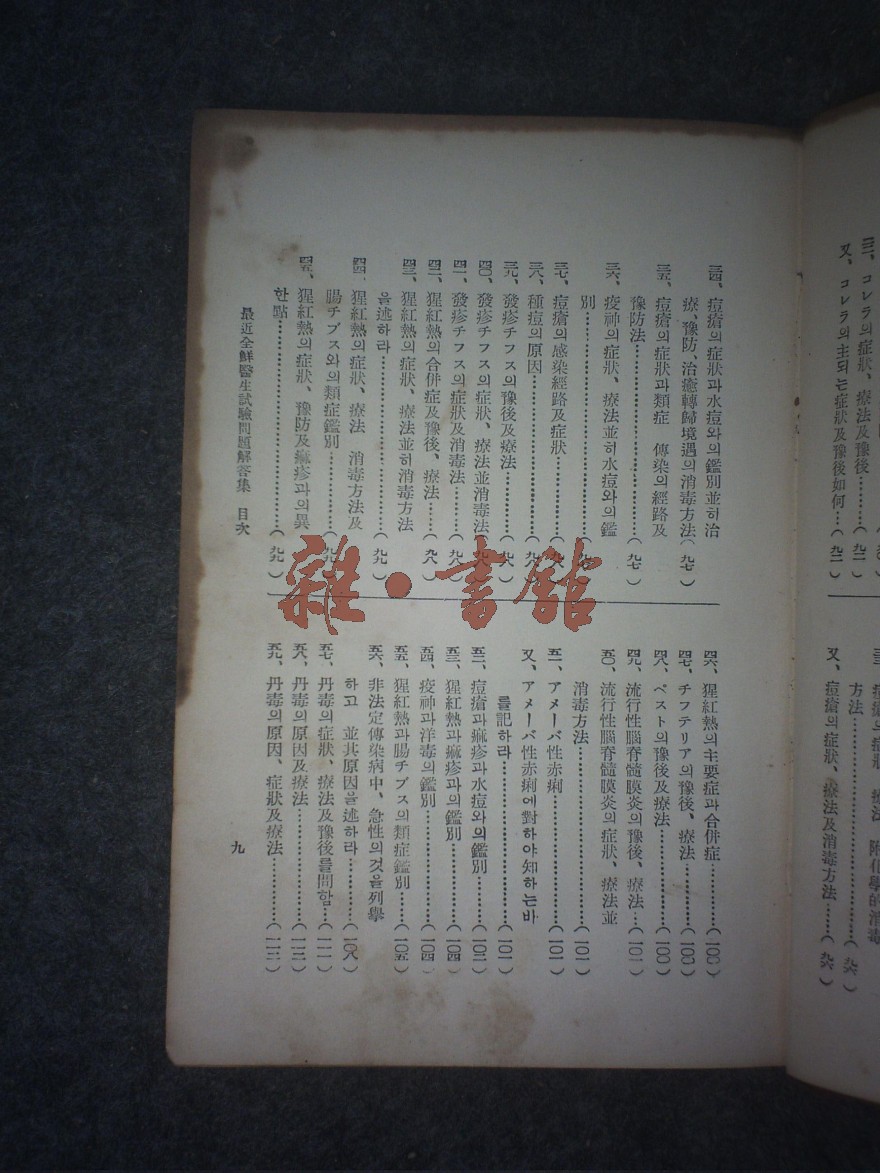 三、コレラの症狀、療法及豫後………(九二)
又、コレラの主되는症狀及豫後如何…(九二)
方法…………(九六)
又、痘瘡의症狀、療法及消毒方法……(九六)
三四、痘瘡의症狀과水痘와의鑑別並히治
療、豫防、治癒轉歸境遇의消毒方法(九七)
三五、痘瘡의症狀과類症 傳染의經路及
豫防法…………(九七)
三六、疫神의症狀、療法並히水痘와의鑑
別…………
三七、痘瘡의感染經路及症狀…………
三八、種痘의原因…………
三九、發疹チフス의豫後及療法…………(九八)
四〇、發疹チフス의症狀、療法並消毒法(九八)
四一、發疹チフス의症狀及消毒法………(九八)
四二、猩紅熱의合併症及豫後、療法……(九八)
四三、猩紅熱의症狀、療法並히消毒方法
을述하라…………(九九)
四四、猩紅熱의症狀、療法 消毒方法及
腸チブス와의類症鑑別…………(九九)
四五、猩紅熱의症狀、豫防及痲疹과의異
한點…………(九九)
四六、猩紅熱의主要症과合併症…………(一〇〇)
四七、チフテリア의豫後、療法…………(一〇〇)
四八、ペスト의豫後及療法…………(一〇〇)
四九、流行性腦脊髓膜炎의豫後、療法…(一〇一)
五〇、流行性腦脊髓膜炎의症狀、療法並
消毒方法…………(一〇一)
五一、アメーバ性赤痢…………(一〇一)
又、アメーバ性赤痢에對하야知하는바
를記하라…………(一〇一)
五二、痘瘡과痲疹과水痘와의鑑別………(一〇二)
五三、猩紅熱과痲疹과의鑑別…………(一〇四)
五四、疫神과洋毒의鑑別…………(一〇四)
五五、猩紅熱과腸チブス의類症鑑別……(一〇五)
五六、非法定傳染病中、急性의것을列擧
하고 並其原因을述하라…………(一〇八)
五七、丹毒의症狀、療法及豫後를問함…(一一一)
五八、丹毒의原因及療法…………(一一二)
五九、丹毒의原因、症狀及療法…………(一一二)
最近全鮮醫生試驗問題解答集 目次
九
雜·書館